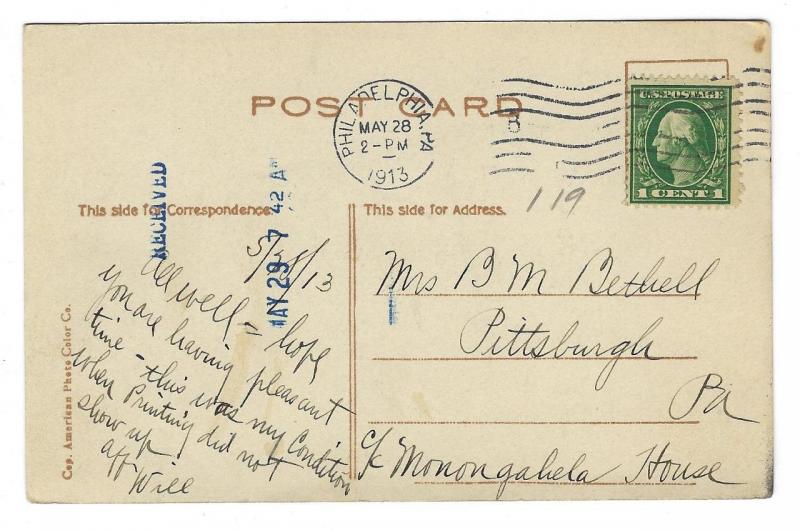 POST CARD
PHILADELPHIA, PA
MAY 28
2-PM
1913
U.S. POSTAGE
1 CENT 1
119
RECEIVED
MAY 29 7 42 A
This side for Correspondence.
This side for Address.
5/28/13
All well - hope
you are having pleasant
time - this was my Condition
when Printing did not
show up
aff
Will
Mrs B M Bethell
Pittsburgh
Pa
c/o Monongahela House
Cop. American Photo Color Co.